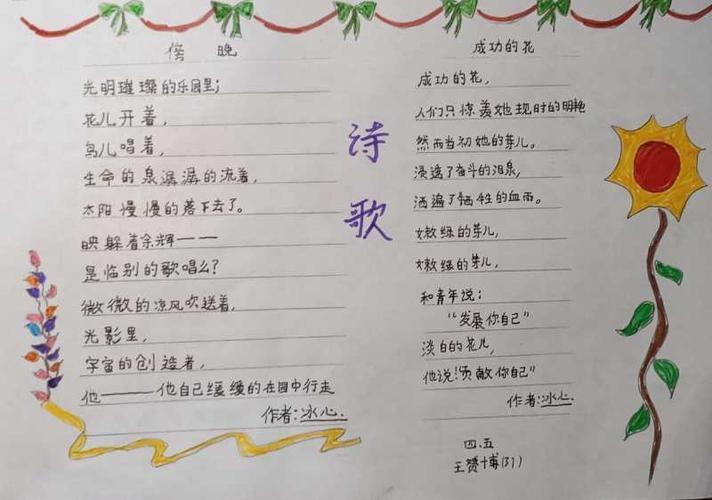 傍 晚
光明璀璨的乐园里;
花儿开着,
鸟儿唱着,
生命的泉潺潺的流着,
太阳慢慢的落下去了。
映躲着余辉——
是临别的歌唱么?
微微的凉风吹送着,
光影里,
宇宙的创造者,
他——他自己缓缓的在园中行走
作者:冰心.
诗
歌
成功的花
成功的花,
人们只惊羡她现时的明艳
然而当初她的芽儿。
浸透了奋斗的泪泉,
洒遍了牺牲的血雨。
嫩绿的芽儿,
嫩绿的芽儿,
和青年说:
“发展你自己”
淡白的花儿,
他说!贡献你自己”
作者:冰心.
四.五
王赟博(37)